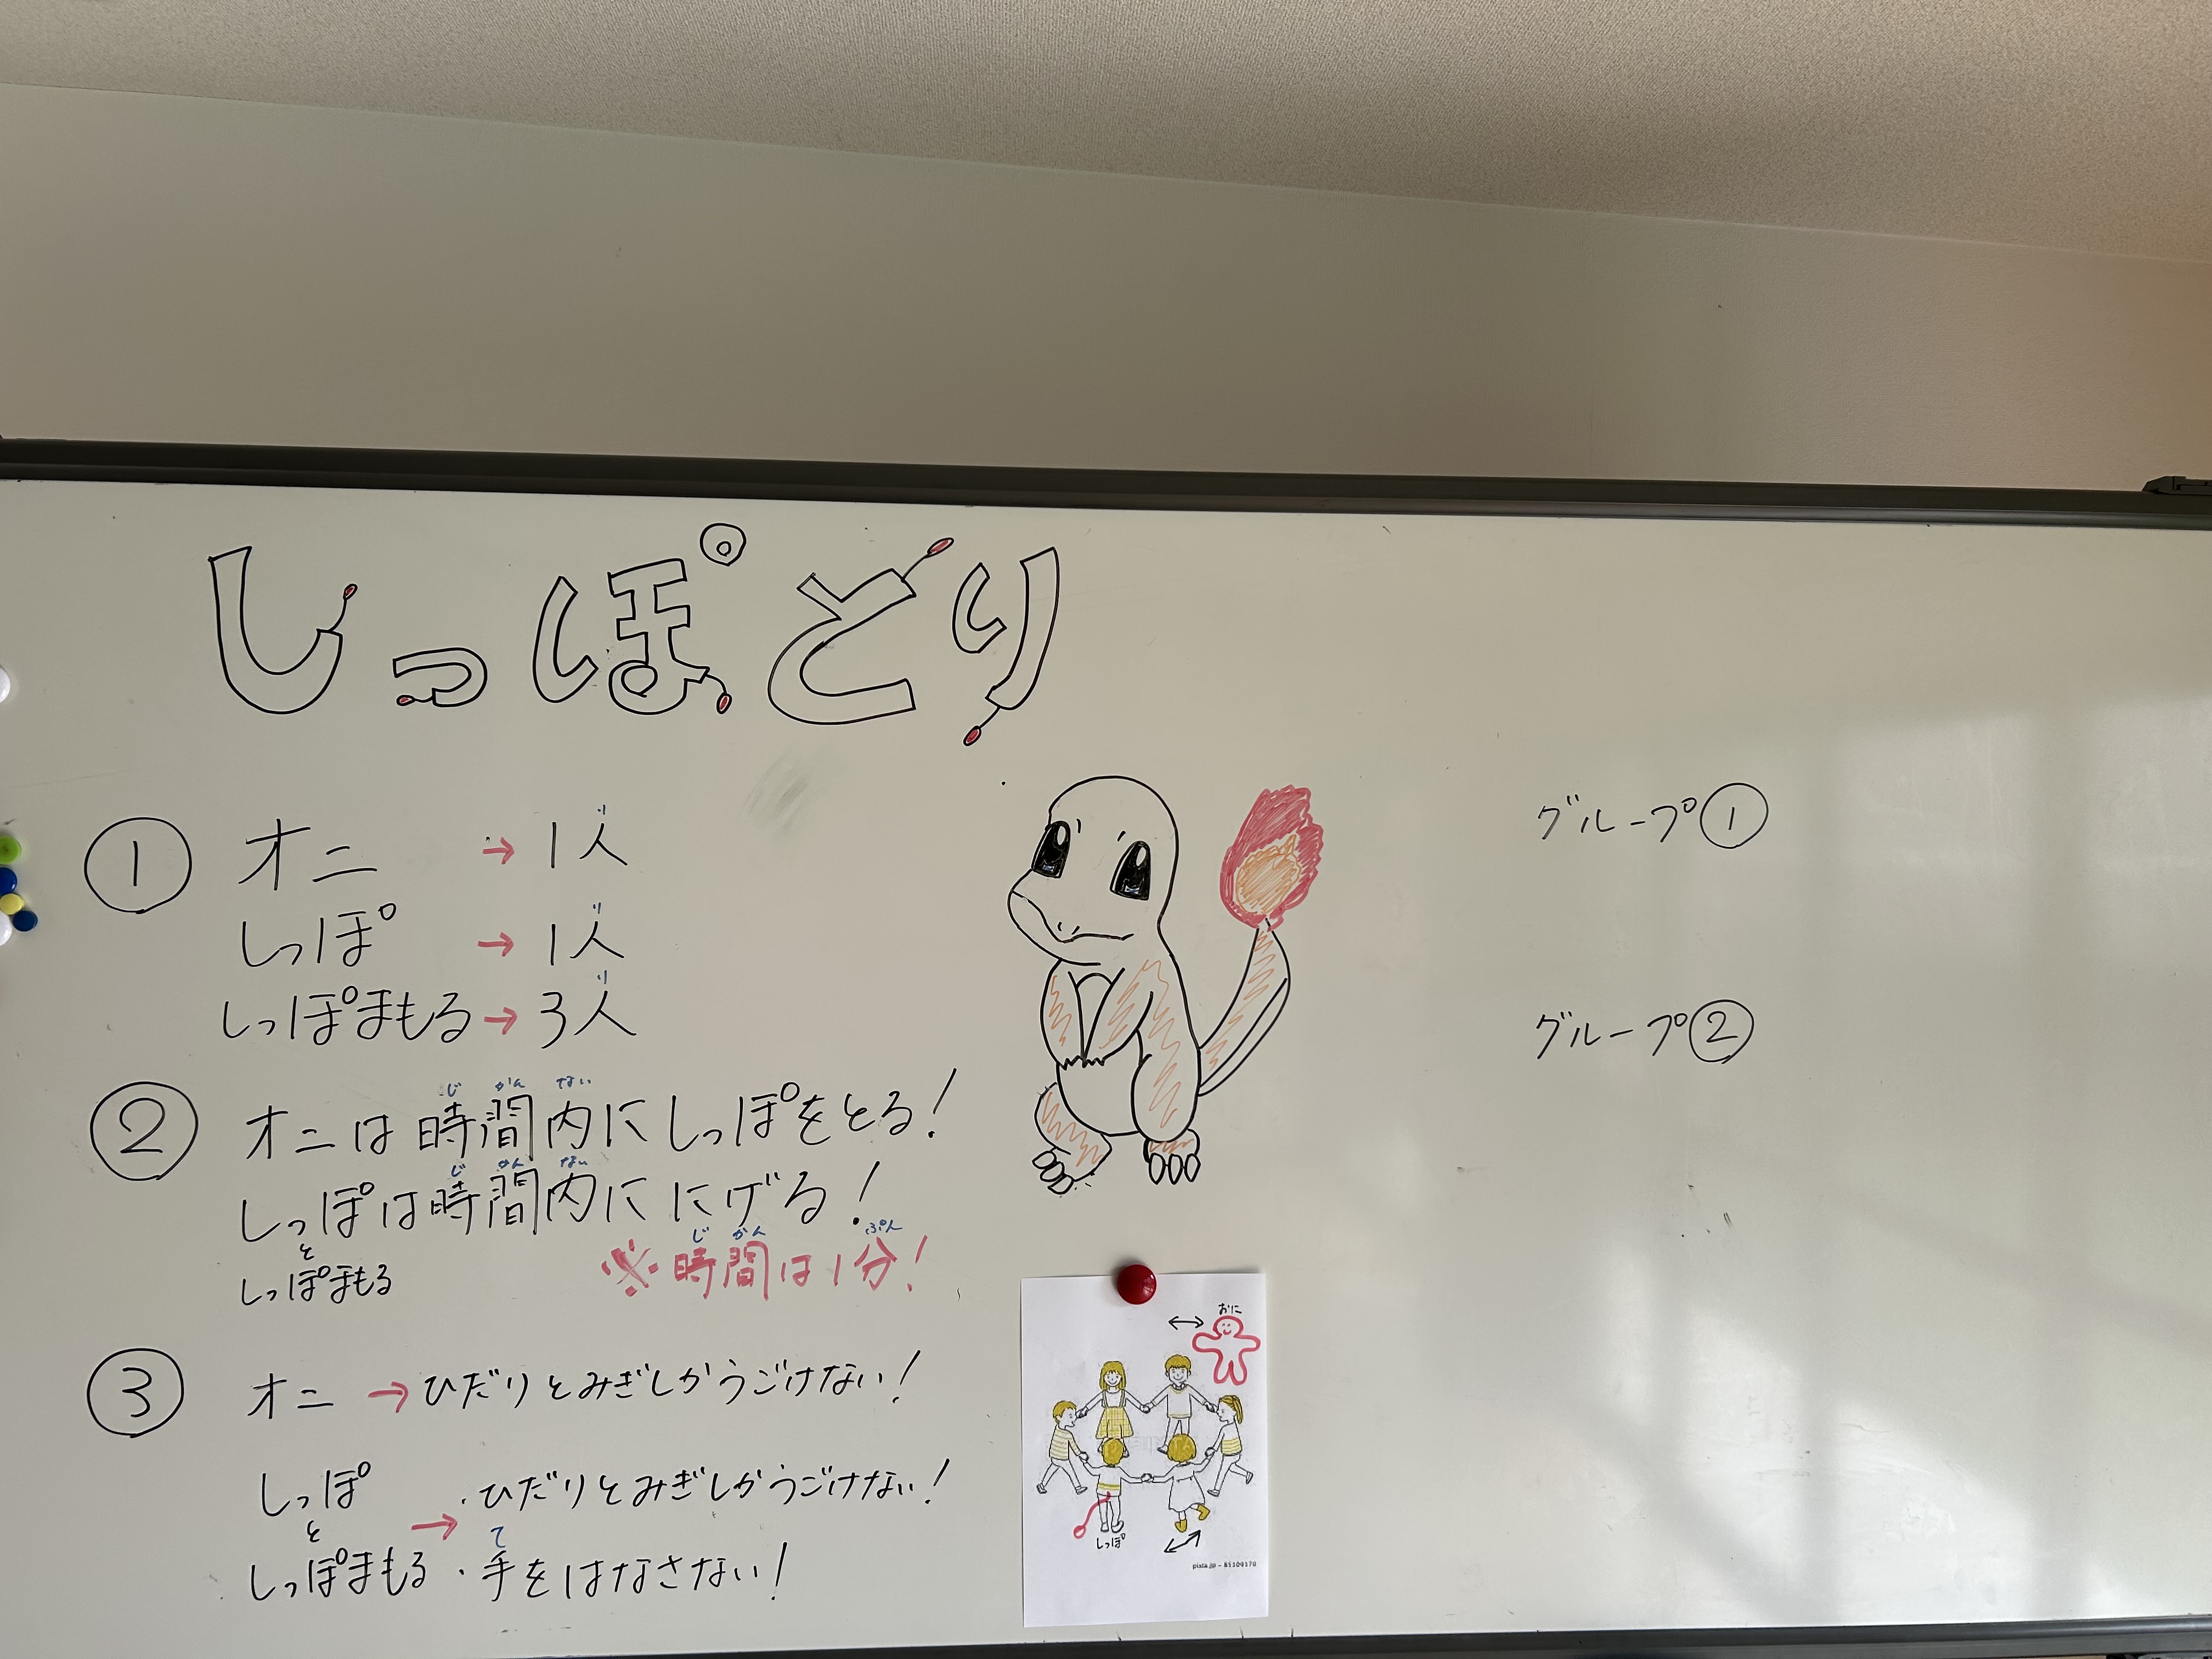 しっぽとり
① オニ → 1人
しっぽ → 1人
しっぽまもる → 3人
② オニは時間内にしっぽをとる!
しっぽは時間内ににげる!
と
しっぽまもる
※時間は1分!
③ オニ → ひだりとみぎしかうごけない!
しっぽ
と
しっぽまもる
→ ・ひだりとみぎしかうごけない!
・手をはなさない!
グループ①
グループ②
おに
しっぽ
pixta.jp - 85109170